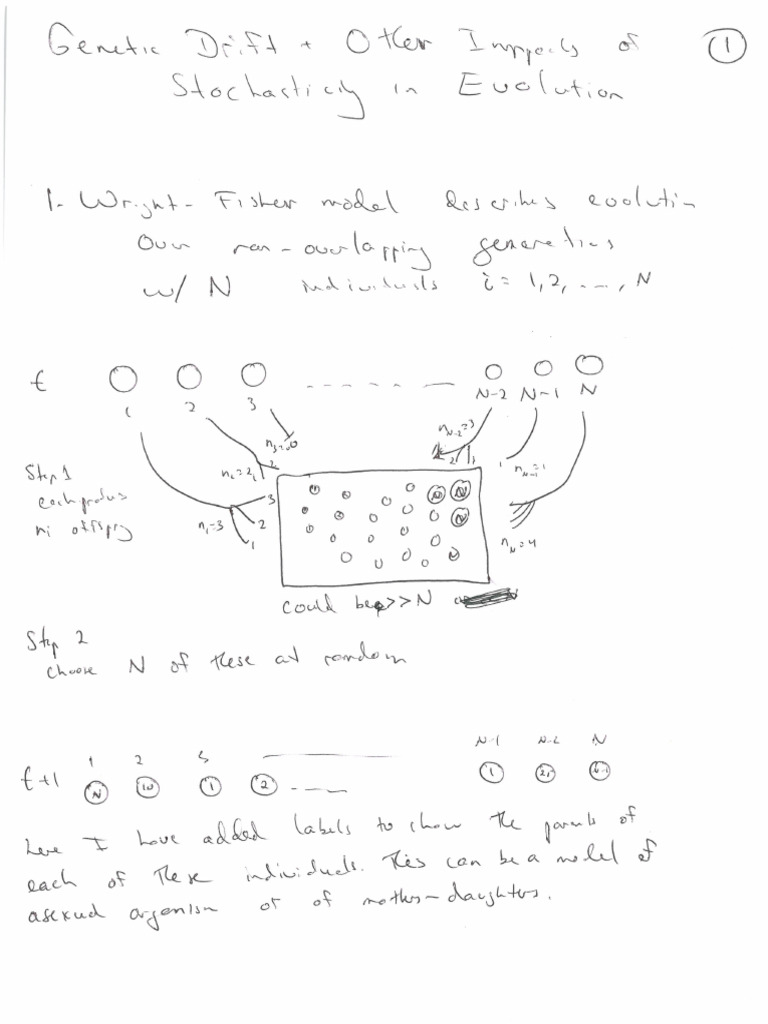 Genetic Drift + Other Impacts of ①
Stochasticity in Evolution
1- Wright-Fisher model describes evolution
Over non-overlapping generations
w/ N individuals i = 1, 2, ...., N
t
1 2 3 N-2 N-1 N
n₃=0 n_{N-2}=3
Step 1
each produces
ni offspring
n₂=2 1 2
n₁=3 1 2 3
2 1
1 n_{N-1}=1
n_N=4
N N
N
N
could be >> N
Step 2
choose N of these at random
1 2 3 N-1 N-2 N
t+1 N 10 1 2 ---- 1 N-1
here I have added labels to show the parents of
each of these individuals. This can be a model of
asexual organism or of mothers-daughters.